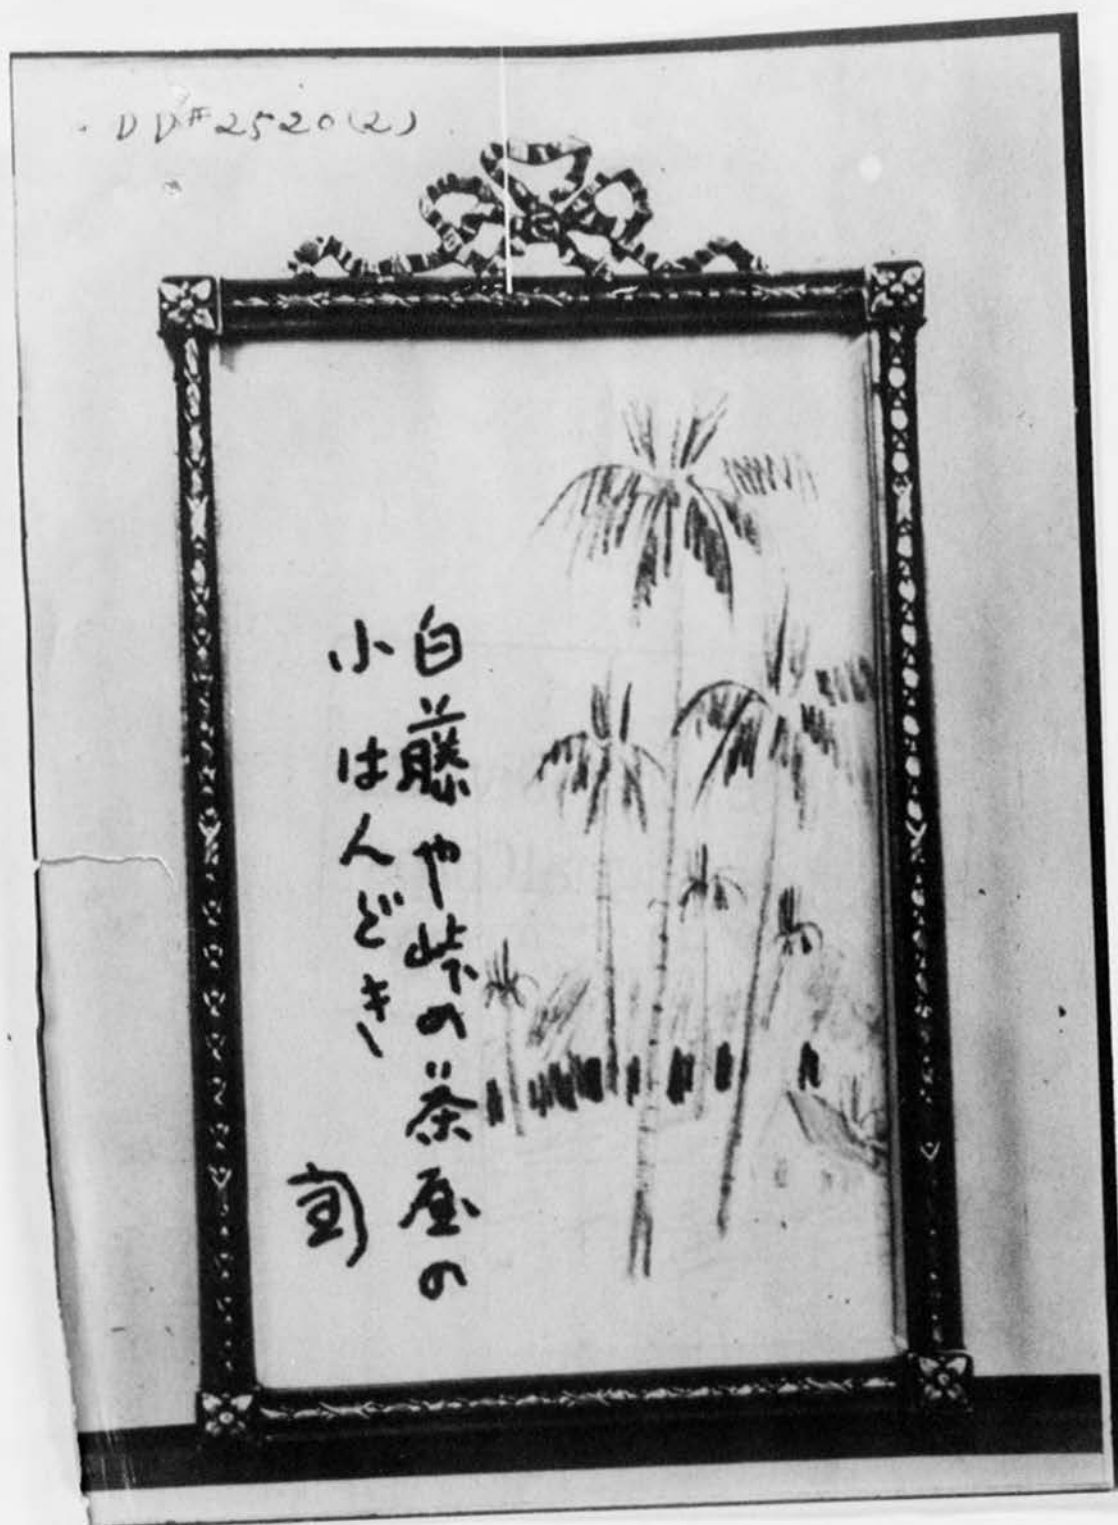 DD#2520(2)
白藤や柴の茶屋の
小はんどき